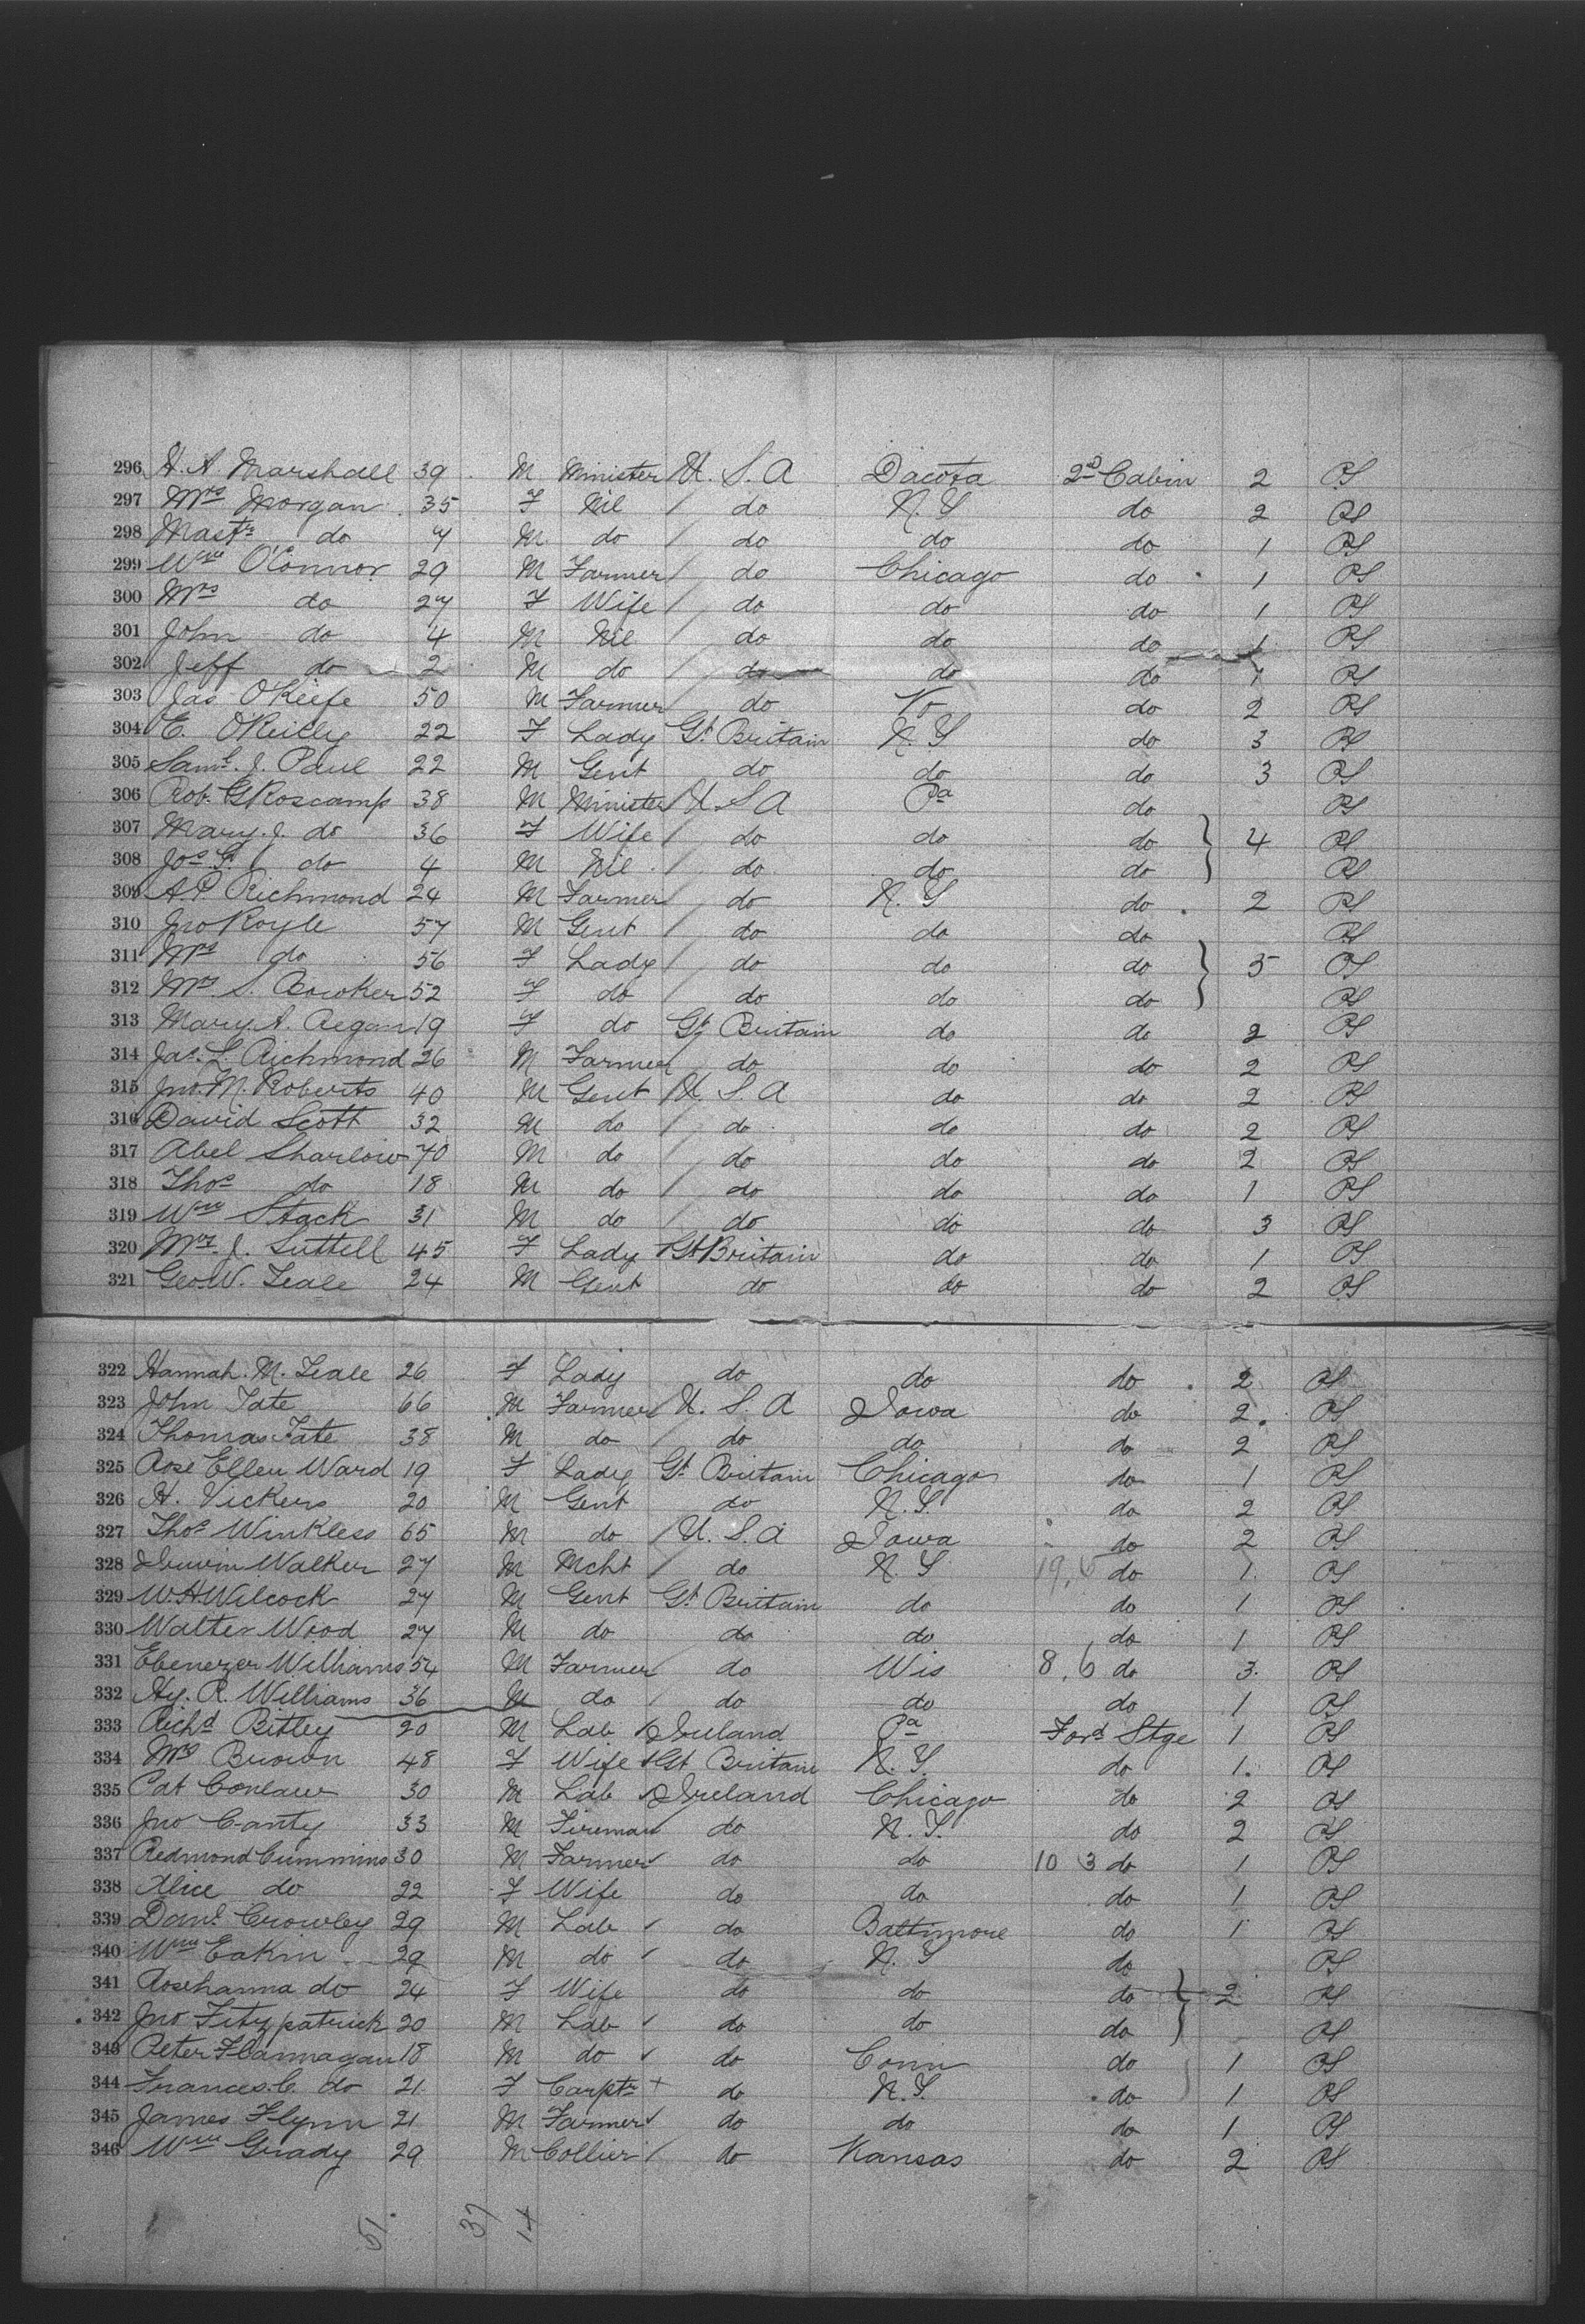 296 H. A. Marshall 39 M Minister U. S. A Dacota 2D Cabin 2 PS
297 Mrs Morgan 35 F Nil / do N. Y do 2 PS
298 Mastr do 7 M do / do do do 1 PS
299 Wm O'Connor 29 M Farmer / do Chicago do 1 PS
300 Mrs do 27 F Wife / do do do 1 PS
301 John do 4 M Nil / do do do 1 PS
302 Jeff do 2 M do / do do do 1 PS
303 Jas O'Keefe 50 M Farmer do Va do 2 PS
304 E. O'Reilly 22 F Lady Gt Britain N. Y do 3 PS
305 Saml. J. Paul 22 M Gent do do do 3 PS
306 Rob. G Roscamp 38 M Minister U. S A Pa do PS
307 Mary. J. do 36 F Wife / do do do } 4 PS
308 Jos. G. do 4 M Nil / do do do PS
309 A P Richmond 24 M Farmer / do N. Y do 2 PS
310 Jno Royle 57 M Gent / do do do PS
311 Mrs do 56 F Lady / do do do } 5 PS
312 Mrs S. Bowker 52 F do / do do do PS
313 Mary A. Regan 19 F do Gt Britain do do 2 PS
314 Jas. L. Richmond 26 M Farmer do do do 2 PS
315 Jno. M. Roberts 40 M Gent U. S. A do do 2 PS
316 David Scott 32 M do / do do do 2 PS
317 Abel Sharlow 70 M do / do do do 2 PS
318 Thos do 18 M do / do do do 1 PS
319 Wm Stack 31 M do / do do do 3 PS
320 Mrs. J. Suttell 45 F Lady Gt Britain do do 1 PS
321 Geo. W. Teale 24 M Gent do do do 2 PS
322 Hannah. M. Teale 26 F Lady do do do 2 PS
323 John Tate 66 M Farmer U. S. A Iowa do 2 PS
324 Thomas Tate 38 M do / do do do 2 PS
325 Rose Ellen Ward 19 F Lady Gt Britain Chicago do 1 PS
326 H. Vickers 20 M Gent do N. Y. do 2 PS
327 Thos Winkless 65 M do / U. S. A Iowa do 2 PS
328 Irwin Walker 27 M Mcht / do N. Y do 1 PS
329 W. H Wilcock 27 M Gent Gt Britain do do 1 PS
330 Walter Wood 27 M do do do do 1 PS
331 Ebenezer Williams 54 M Farmer do Wis 8.6 do 3 PS
332 Hy. R. Williams 36 M do / do do do 1 PS
333 Richd Bitley 20 M Lab Ireland Pa Ford Stge 1 PS
334 Mrs Brown 48 F Wife Gt Britain N. Y. do 1 PS
335 Pat Conlaw 30 M Lab Ireland Chicago do 2 PS
336 Jno Canty 33 M Fireman do N. Y. do 2 PS
337 Redmond Cummins 30 M Farmer do do 10 3 do 1 PS
338 Alice do 22 F Wife do do do 1 PS
339 Danl Crowley 29 M Lab do Baltimore do 1 PS
340 Wm Eakin 29 M do do N. Y do PS
341 Rosehanna do 24 F Wife do do do } 2 PS
342 Jno Fitzpatrick 20 M Lab do do do PS
343 Peter Flannagan 18 M do do Conn do 1 PS
344 Frances. C. do 21 F Carptr + do N. Y. do 1 PS
345 James Flynn 21 M Farmer do do do 1 PS
346 Wm Grady 29 M Collier / do Kansas do 2 PS
51. 37 14